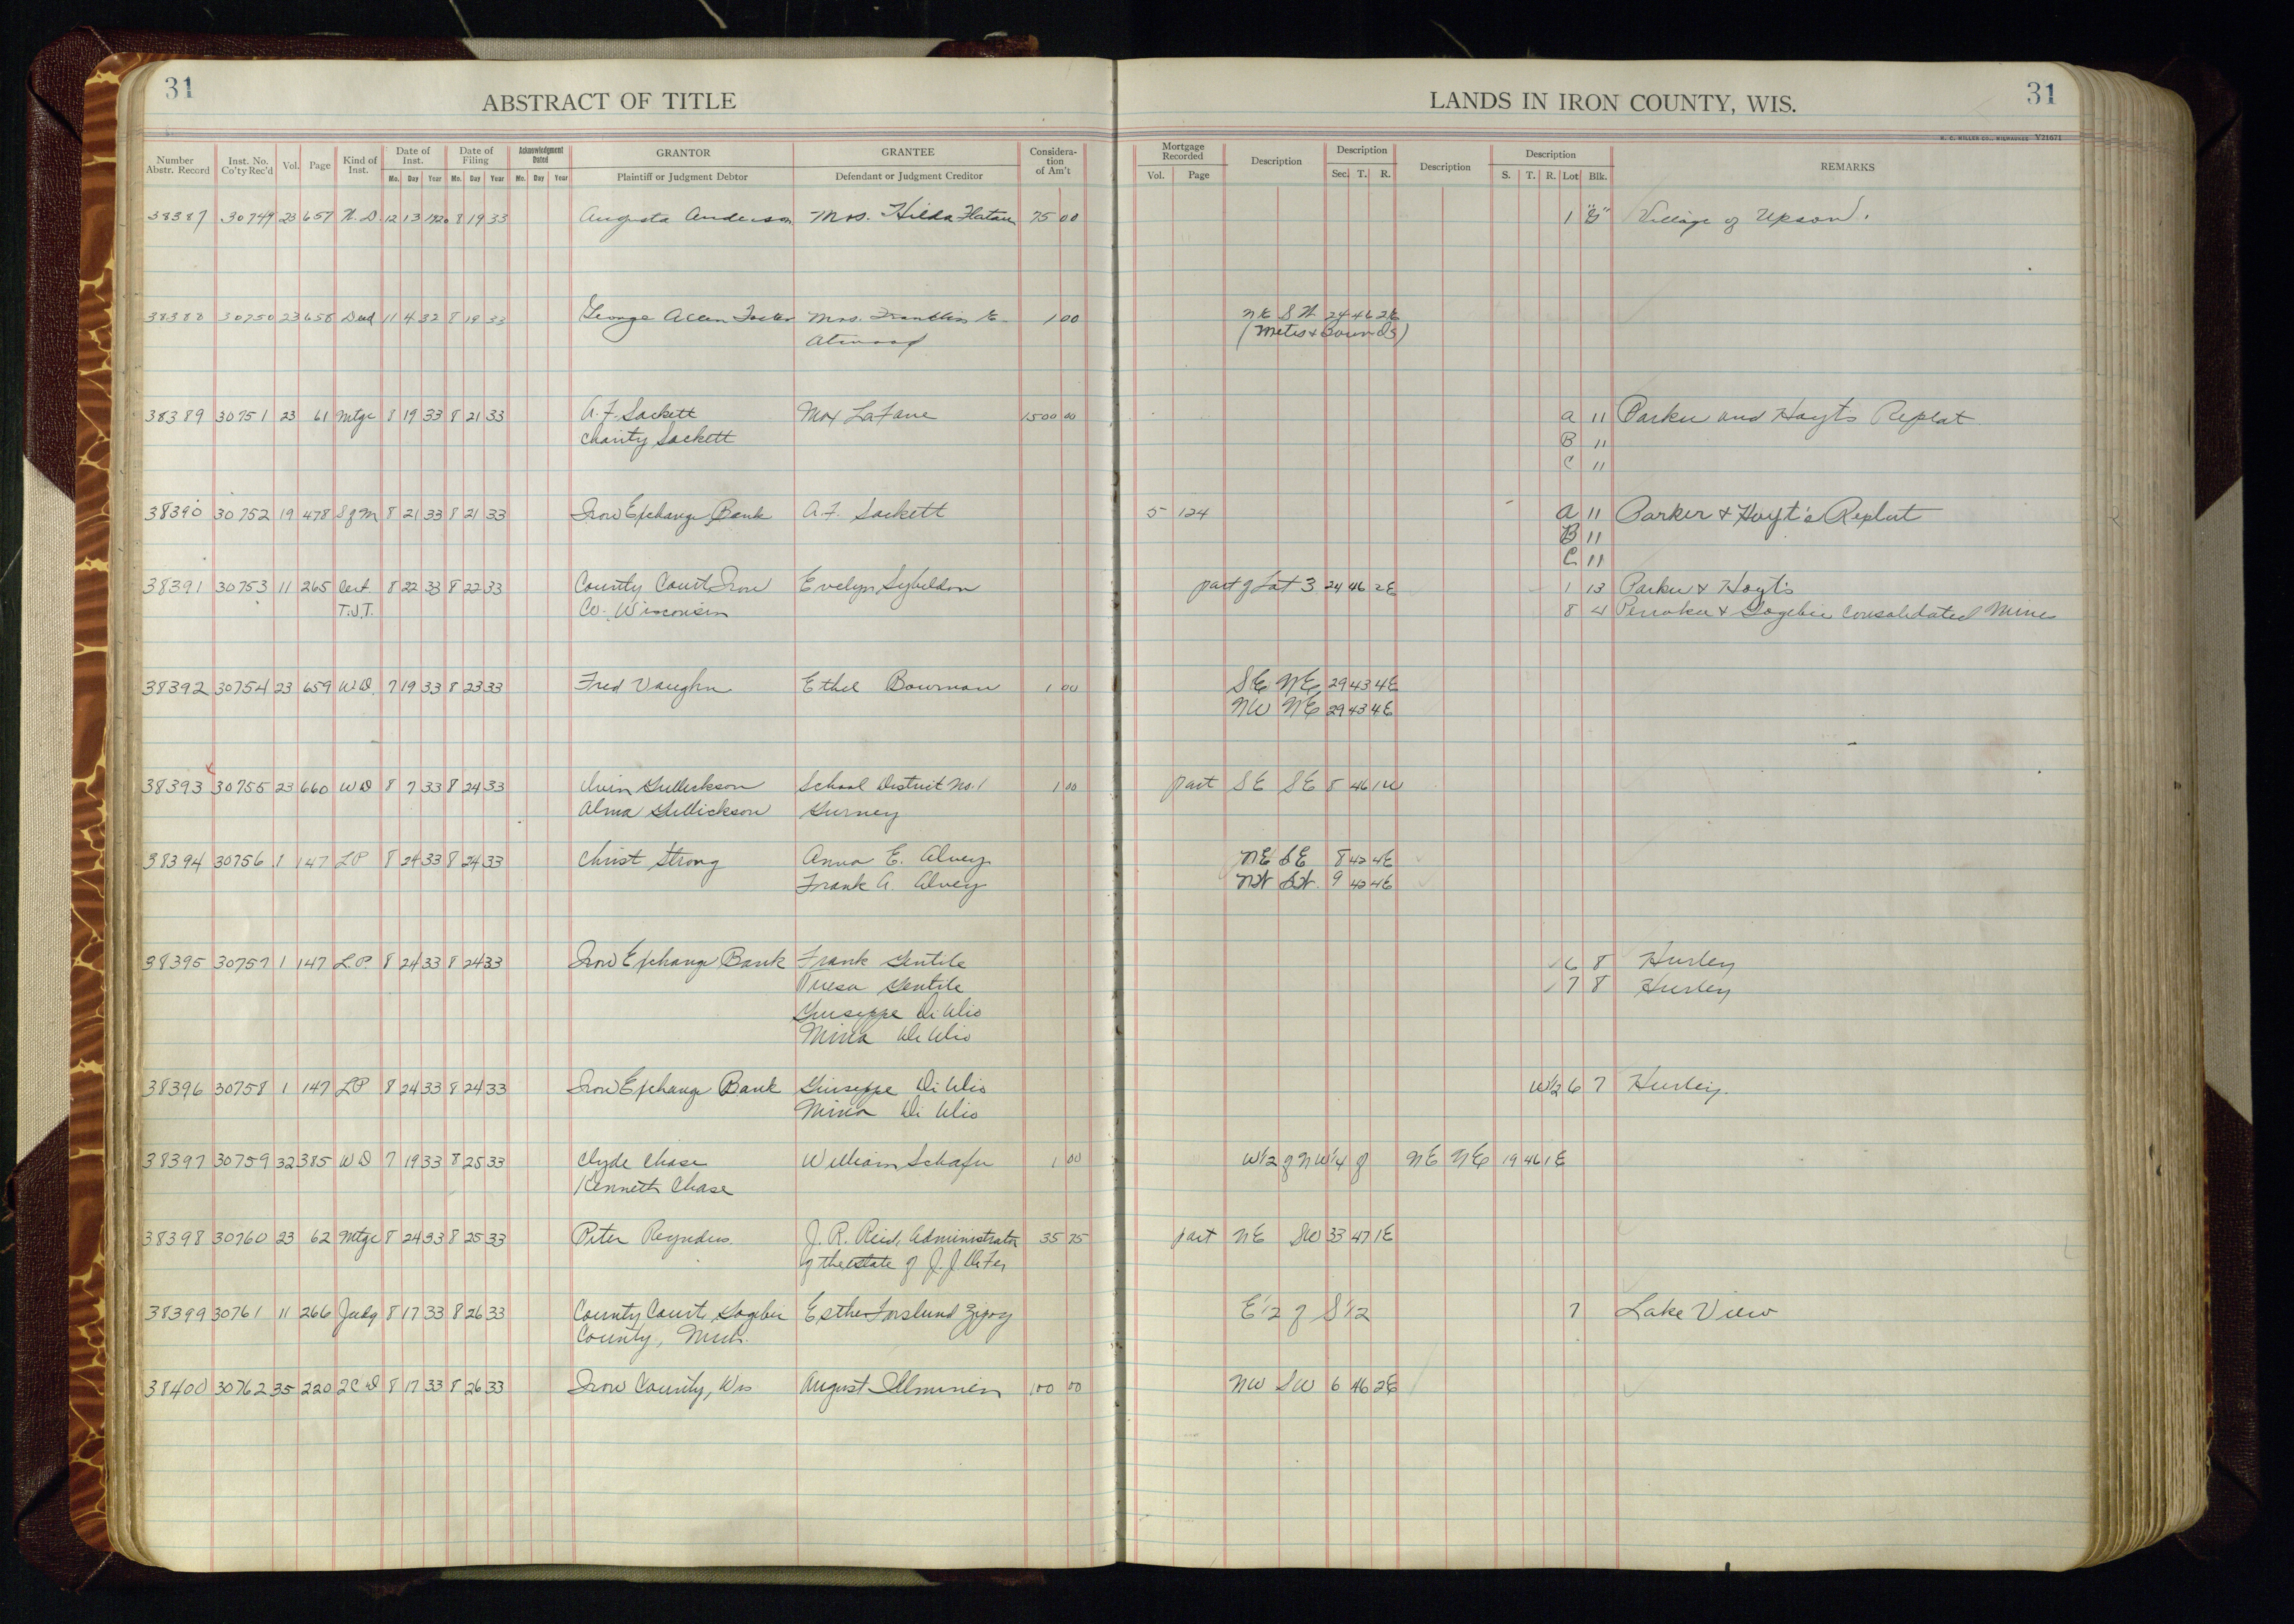 31
ABSTRACT OF TITLE
LANDS IN IRON COUNTY, WIS.
31
H. C. MILLER CO., MILWAUKEE Y21671
Number Abstr. Record Inst. No. Co'ty Rec'd Vol. Page Kind of Inst. Date of Inst. Mo. Day Year Date of Filing Mo. Day Year Acknowledgment Dated Mo. Day Year GRANTOR Plaintiff or Judgment Debtor GRANTEE Defendant or Judgment Creditor Considera-tion of Am't Mortgage Recorded Vol. Page Description Description Sec. T. R. Description Description S. T. R. Lot Blk. REMARKS
38387 30749 23 657 W.D. 12 13 1920 8 19 33 Augusta Anderson Mrs. Hilda 75 00 1 "G" Village of Upson.
38388 30750 23 658 Deed 11 4 32 8 19 33 George Allen Foster Mrs. Franklin E. 1 00 NE SW 24 46 2E
Atwood (Metes & Bounds)
38389 30751 23 61 Mtge 8 19 33 8 21 33 A. F. Sackett Max LaFave 1500 00 A 11 Parker and Hoyts Replat
Charity Sackett B 11
C 11
38390 30752 19 478 S of M 8 21 33 8 21 33 Iron Exchange Bank A. F. Sackett 5 124 A 11 Parker & Hoyt's Replat
B 11
C 11
38391 30753 11 265 Cert 8 22 33 8 22 33 County Court Iron Evelyn Sybeldon part of Lot 3 24 46 2E 1 13 Parker & Hoyt's
T.J.T. Co. Wisconsin 8 4 Penokee & Gogebic Consolidated Mines
38392 30754 23 659 WD. 7 19 33 8 23 33 Fred Vaughn Ethel Bowman 1 00 SE NE 29 43 4E
NW NE 29 43 4E
38393 30755 23 660 WD 8 7 33 8 24 33 Gullickson School District No. 1 1 00 part SE SE 5 46 1W
Alma Gullickson Gurney
38394 30756 1 147 LP 8 24 33 8 24 33 Christ Strong Anna E. Alvey NE SE 8 42 4E
Frank A. Alvey NW SW. 9 42 4E
38395 30757 1 147 L.P. 8 24 33 8 24 33 Iron Exchange Bank Frank Gentile 6 8 Hurley
Teresa Gentile 7 8 Hurley
Giuseppe Di Ulio
Di Ulio
38396 30758 1 147 LP 8 24 33 8 24 33 Iron Exchange Bank Giuseppe Di Ulio W1/2 6 7 Hurley.
Di Ulio
38397 30759 32 385 WD 7 19 33 8 25 33 Clyde Chase William Schafer 1 00 W1/2 of NW1/4 of NE NE 19 46 1E
Kenneth Chase
38398 30760 23 62 Mtge 8 24 33 8 25 33 Peter Reynders J. R. Reid, Administrator 35 75 part NE SW 33 47 1E
of the estate of J. J.
38399 30761 11 266 Judg 8 17 33 8 26 33 County Court, Gogebic Esther Forslund E 1/2 of S 1/2 7 Lake View
County, Mich.
38400 30762 35 220 8 17 33 8 26 33 Iron County, Wis August 100 00 NW SW 6 46 2E